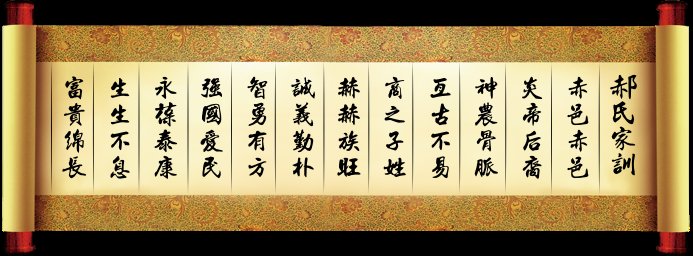 郝氏家訓
赤邑赤邑
炎帝后裔
神農骨脈
亙古不易
商之子姓
赫赫族旺
誠義勤朴
智勇有方
強國愛民
永葆泰康
生生不息
富貴綿長